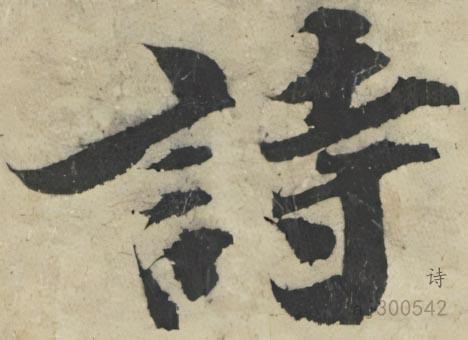 詩
诗
a j300542